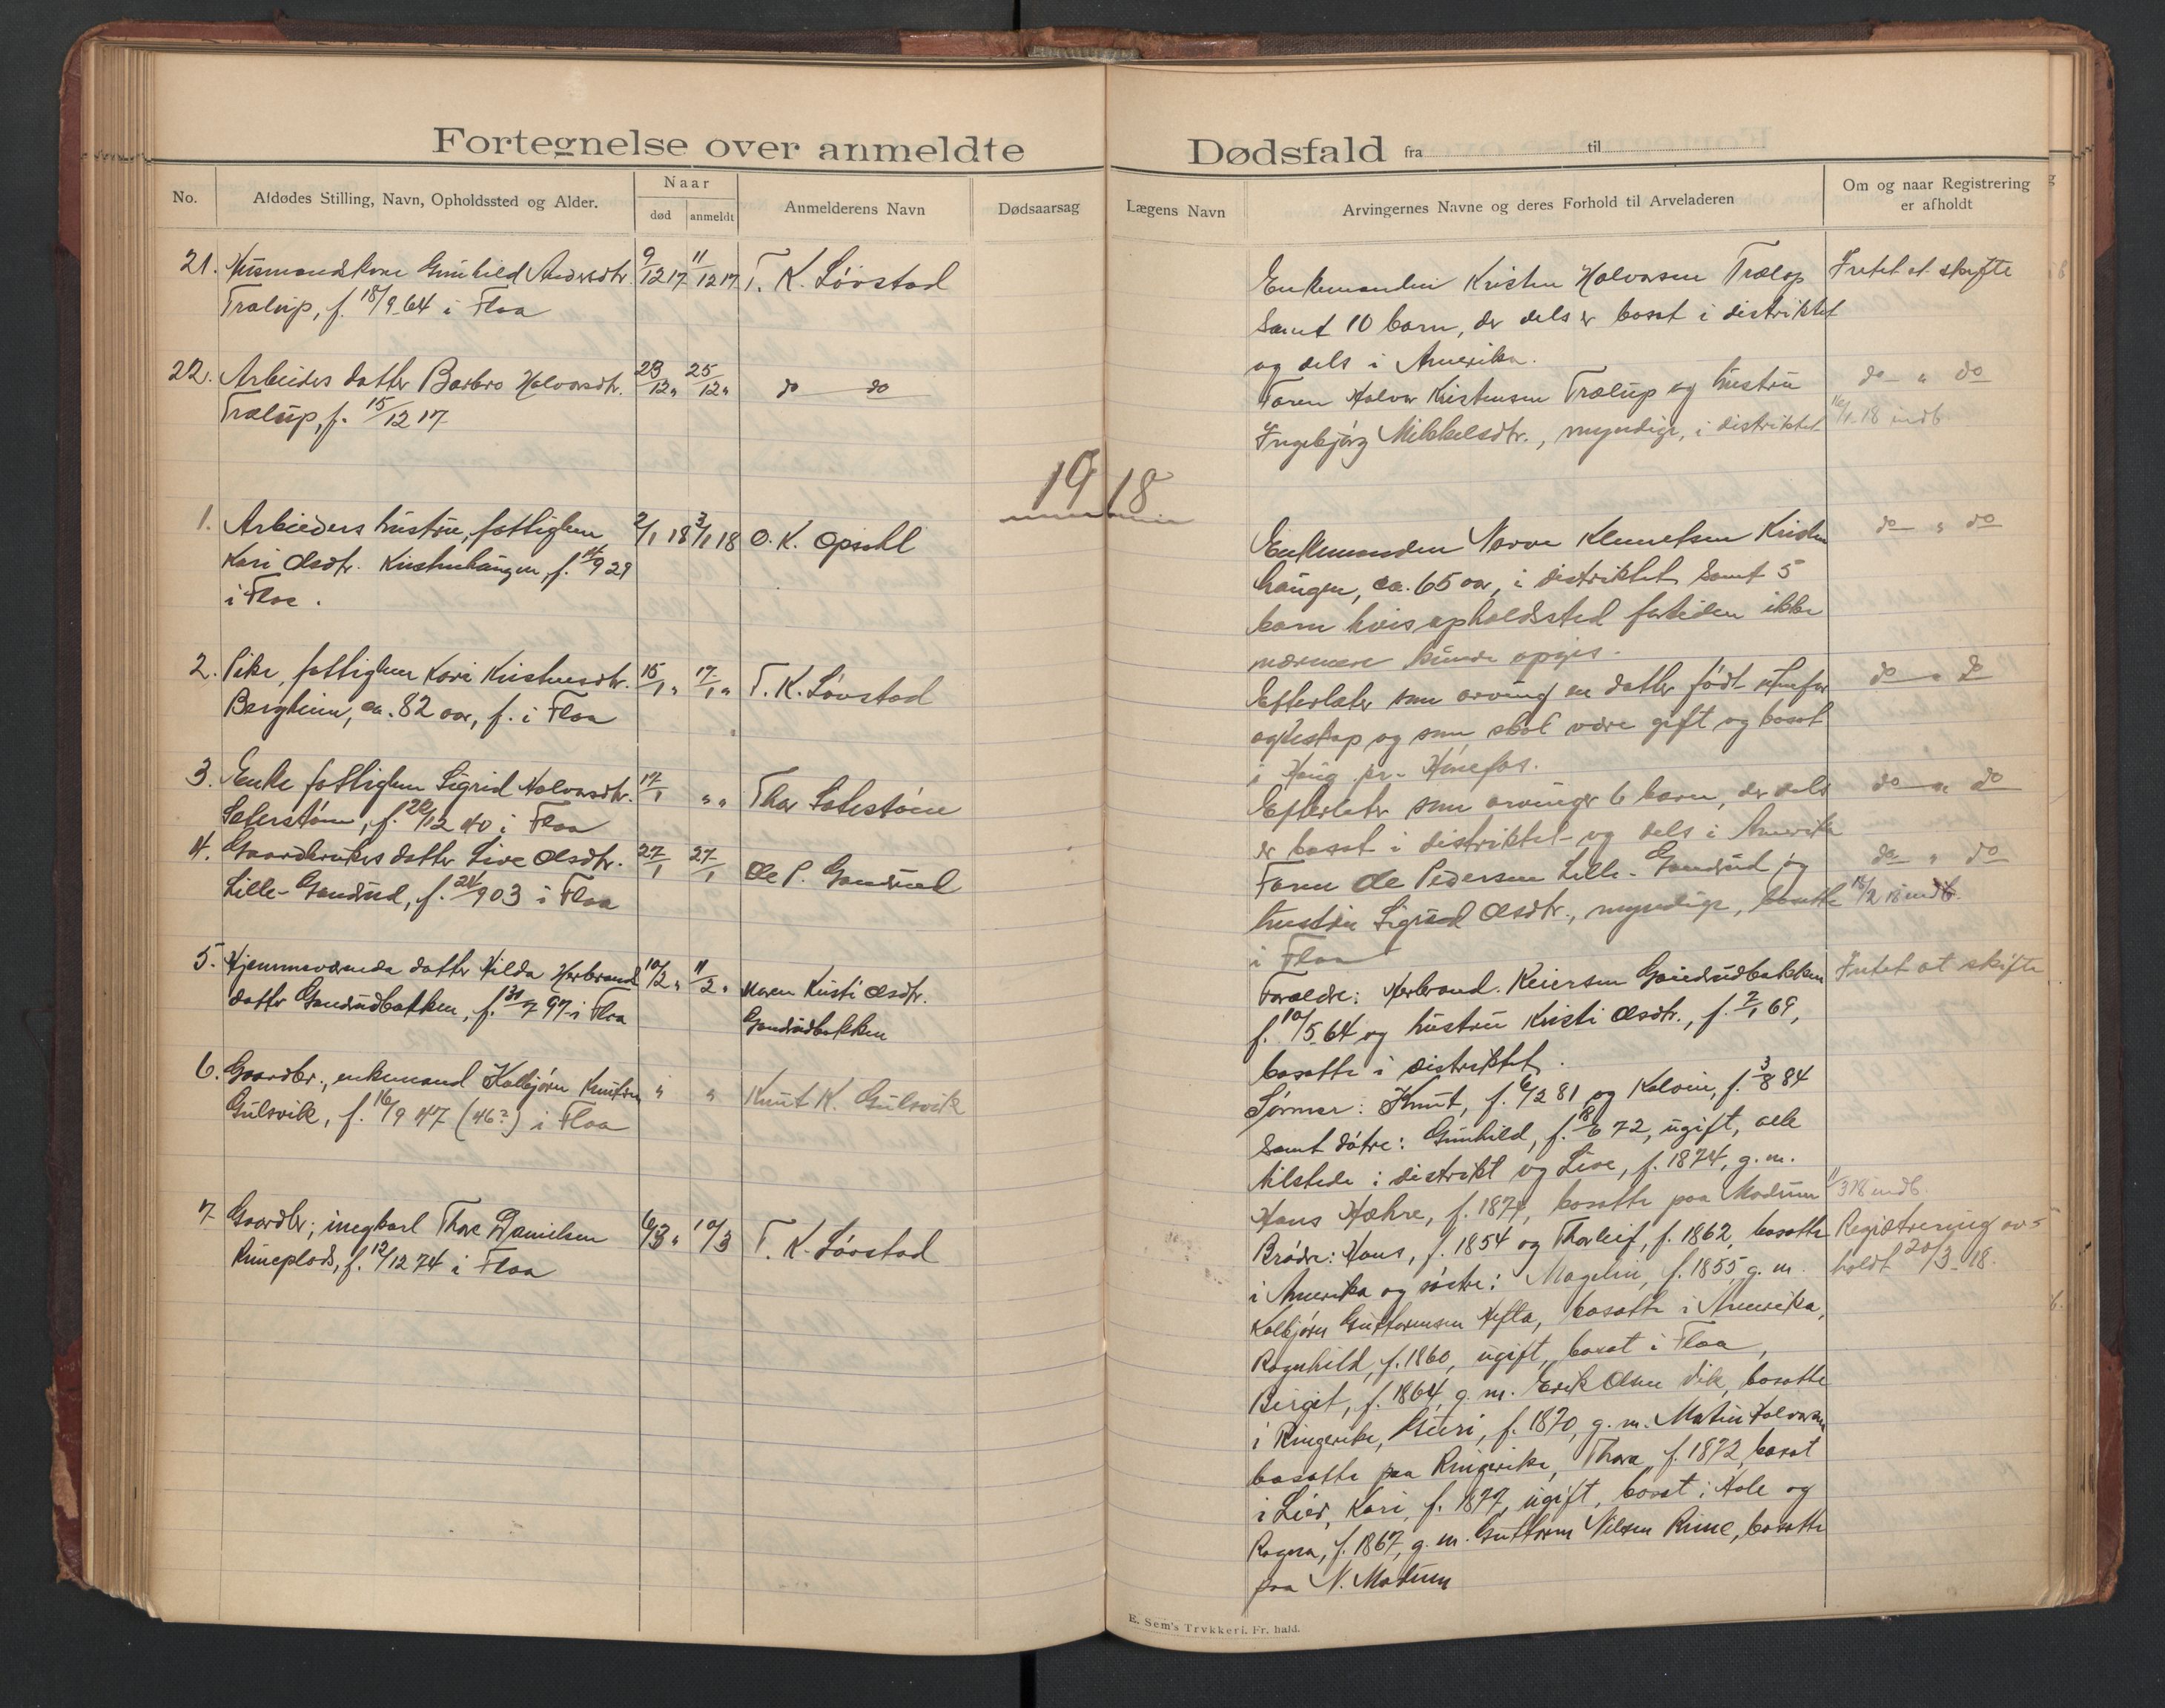 Fortegnelse over anmeldte Dødsfald fra til
No.
Afdødes Stilling, Navn, Opholdssted og Alder.
Naar
død
anmeldt
Anmelderens Navn
Dødsaarsag
Lægens Navn
Arvingernes Navne og deres Forhold til Arveladeren
Om og naar Registrering
er afholdt
21. Husmandskone Gunhild Andersdtr. 9/12 17 11/12 17 T. K. Lövstad
Trælup, f. 18/9 64 i Flaa
Enkemanden Kristen Halvorsen Trælup
samt 10 barn, der dels er bosat i distriktet
og dels i Amerika.
Intet at skifte
22. Arbeiders datter Barbro Halvorsdtr. 23/12 „ 25/12 „ do do
Trælup, f. 15/12 17
Faren Halvor Kristensen Trælup og hustru
Ingebjörg Mikkelsdtr., myndige, i distriktet
do „ do
16/1-18 indb.
1918
1. Arbeiders hustru, fattiglem 2/1 18 3/1 18 O. K. Opsahl
Kari Olsdtr. Kristenhaugen, f. 9 29
i Flaa.
Enkemanden Narve Klemetsen Kristen
haugen, ca. 65 aar, i distriktet samt 5
barn hvis opholdssted fortiden ikke
nærmere kunde opgis.
do „ do
2. Pike, fattiglem Kari Kristensdtr. 15/1 „ 17/1 „ T. K. Lövstad
Bergheim, ca. 82 aar, f. i Flaa
Efterlater som arving en datter født utenfor
egteskap og som skal være gift og bosat
i Haug pr. Hönefos.
do „ do
3. Enke fattiglem Sigrid Halvorsdtr. 17/1 „ „ Thor
f. 20/12 40 i Flaa
Efterlater som arvinger 6 barn, der dels
er bosat i distriktet og dels i Amerika
do „ do
4. Gaardbrukers datter Live Olsdtr. 27/1 27/1 Ole P. Gandrud
Lille-Gandrud, f. 24/9 03 i Flaa
Faren Ole Pedersen Lille-Gandrud og
hustru Sigrid Olsdtr., myndige, bosatte
i Flaa
do „ do
18/2 18 indb.
5. Hjemmeværende datter Hilda Herbrands 10/2 „ 11/2 „ Maren Kristi Olsdtr.
datter Gandrudbakken, f. 31/7 97 i Flaa
Gandrudbakken
Forældre: Herbrand Reiersen Gandrudbakken
f. 10/5 64 og hustru Kristi Olsdtr., f. 7/1 69,
bosatte i distriktet.
Intet at skifte
6. Gaardbr., enkemand Kolbjörn Knutsen „ „ Knut K. Gulsvik
Gulsvik, f. 16/9 47 (46?) i Flaa
Sönner: Knut, f. 6/2 81 og Kolvin, f. 3/8 84
samt dötre: Gunhild, f. 18/6 72, ugift, alle
tilstede i distrikt og Live, f. 1874, g. m.
Hans Hæhre, f. 1874, bosatte paa Modum
11/3 18 indb.
7 Gaardbr., ungkarl Thore Danielsen 6/3 „ 10/3 T. K. Lövstad
Rimeplads, f. 12/12 74 i Flaa
Brödre: Hans, f. 1854 og Thorleif, f. 1862, bosatte
i Amerika og söstre: Magelin, f. 1855, g. m.
Kolbjörn Guttormsen Hefta, bosatte i Amerika,
Ragnhild, f. 1860, ugift, bosat i Flaa,
Birgit, f. 1864, g. m. Erik Olsen Vik, bosatte
i Ringerike, Guri, f. 1870, g. m. Martin Halvorsen
bosatte paa Ringerike, Thora, f. 1872, bosat
i Lier, Kari, f. 1877, ugift, bosat i Hole og
Ragna, f. 1867, g. m. Guttorm Nilsen Rime, bosatte
paa N. Modum
Registrering av-
holdt 20/3-18.
E. Sem's Trykkeri, Fr. hald.